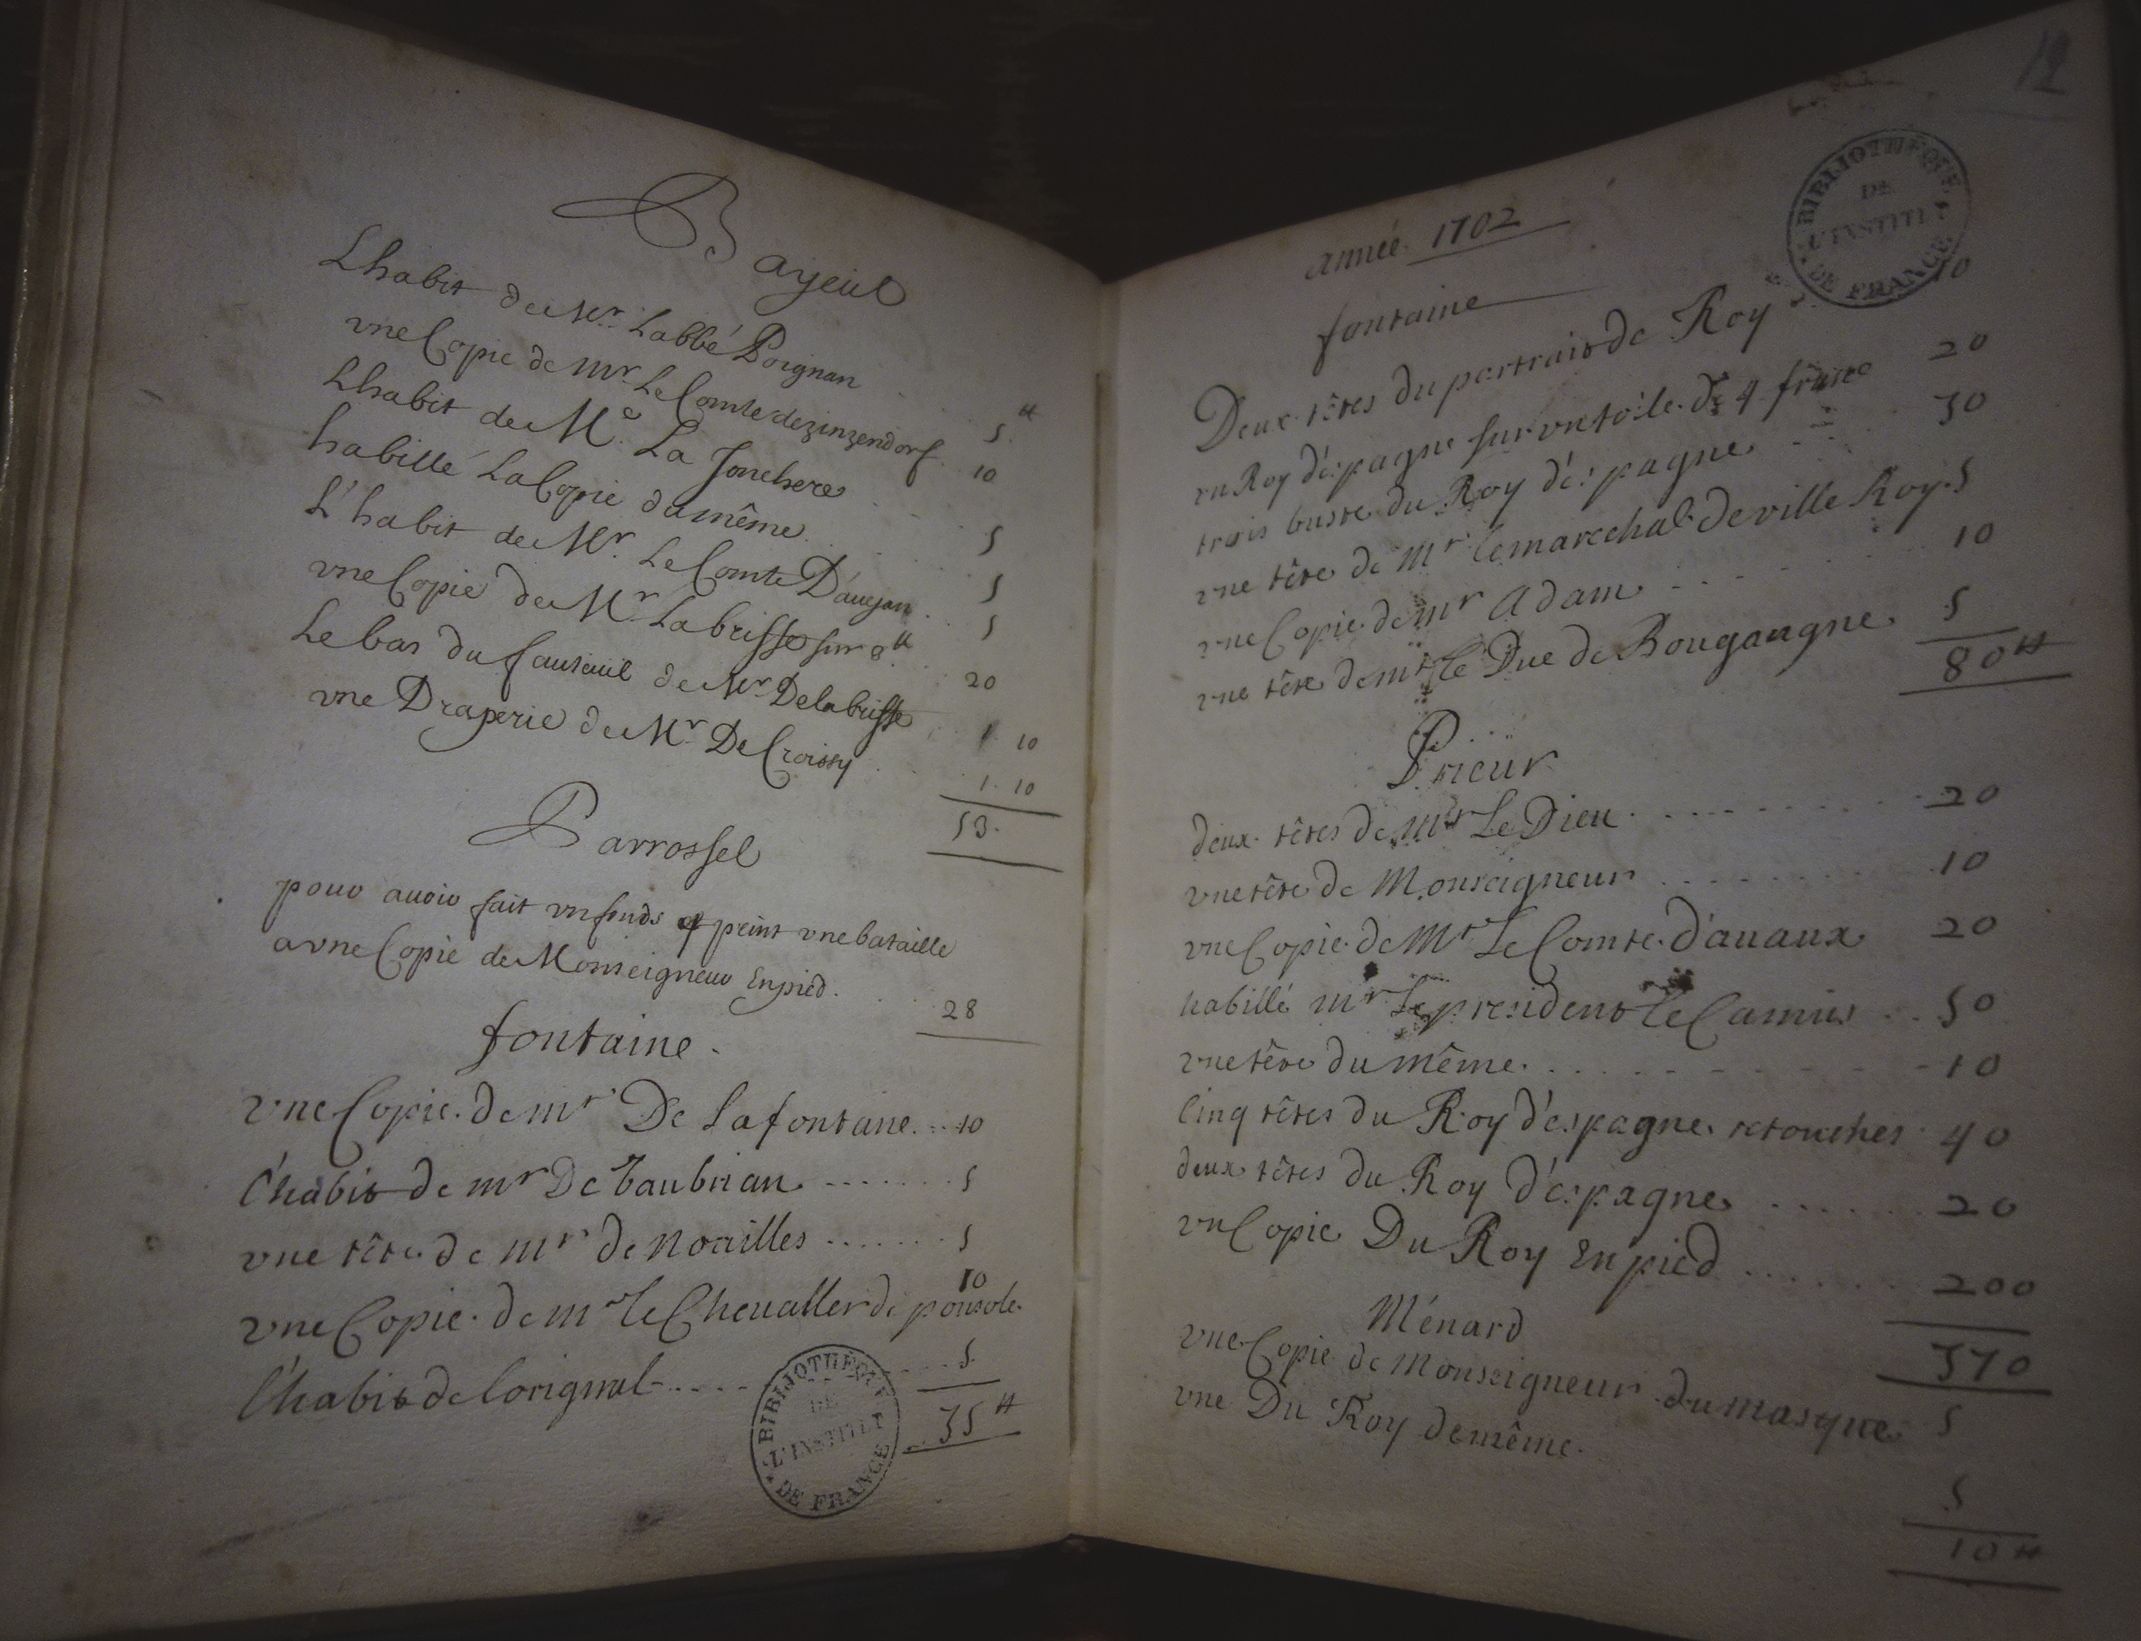 Bayeul
Lhabit de Mr. Labbé Poignan 5 ₶
vne Copie de mr. Le Comte dezinzendorf 10
Lhabit de Me. La Jonchere 5
habillé La Copie du même 5
L'habit de Mr. Le Comte D'auejan 5
vne Copie de Mr Labriffe sur 8 ₶ 20
Le bas du fauteuil de Mr Delabriffe 1 10
vne Draperie de Mr. De Croissy 1. 10
53.
Parrossel
pour auoir fait vn fonds et peint vne bataille
a vne Copie de Monseigneur En pied. 28
fontaine.
vne Copie. de mr De Lafontane. 10
l'habit de mr De baubrian 5
vne tête de mr de noailles 5
vne Copie. de mr le Cheualler de pousole. 10
l'habit de lorignal 5.
35 ₶
12
BIBLIOTHÈQUE DE L'INSTITUT DE FRANCE
année. 1702
fontaine
Deux têtes du portrait de Roy 10
vn Roy d'espagne sur vn toile. de 4 franc 20
trois buste du Roy d'espagne 30
vne tête de mr le marechal de ville Roy. 5
vne Copie de mr adam 10
vne tête de mr le Duc de Bougaugne 5
80 ₶
Prieur
deux têtes de mr Le Dieu 20
vne tête de Monseigneur 10
vne Copie de Mr Le Comte. d'auaux 20
habillé mr Le president le Camus 50
vne tête du même. 10
Cinq têtes du Roy d'espagne retouches 40
deux têtes du Roy d'espagne 20
vn Copie Du Roy En pied 200
370
Ménard
vne Copie de Monseigneur du masque 5
vne Du Roy de même. 5
10 ₶
BIBLIOTHÈQUE DE L'INSTITUT DE FRANCE